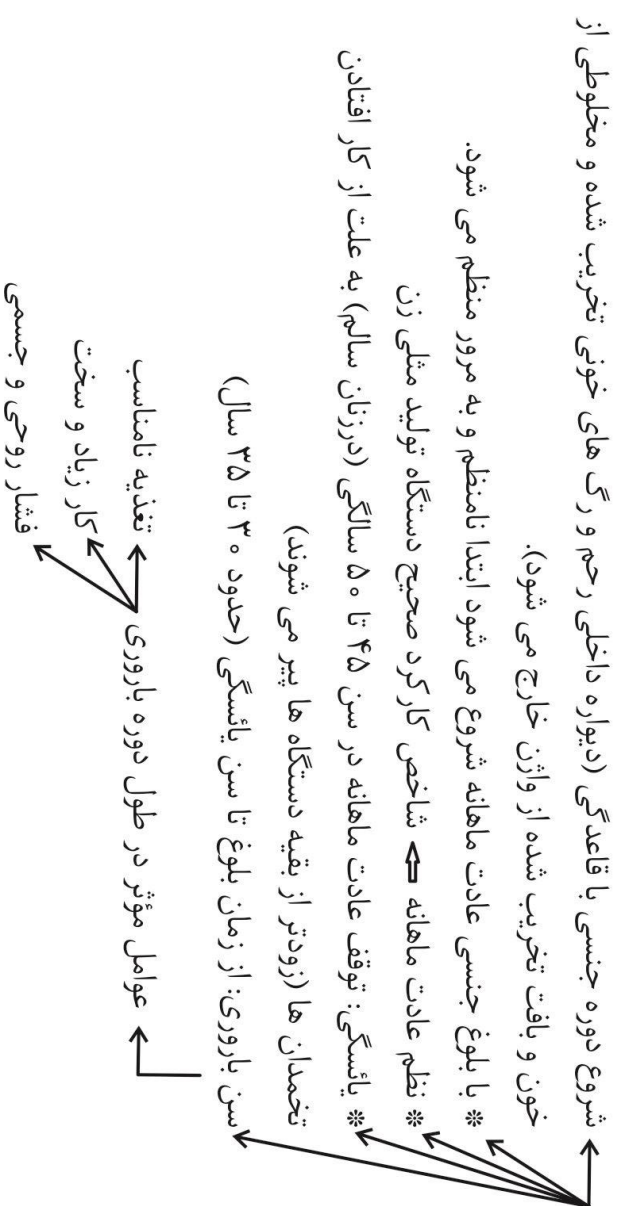 شروع دوره جنسی با قاعدگی (دیواره داخلی رحم و رگ های خونی تخریب شده و مخلوطی از
خون و بافت تخریب شده از واژن خارج می شود).
* با بلوغ جنسی عادت ماهانه شروع می شود ابتدا نامنظم و به مرور منظم می شود.
* نظم عادت ماهانه ⇦ شاخص کارکرد صحیح دستگاه تولید مثلی زن
* یائسگی: توقف عادت ماهانه در سن ۴۵ تا ۵۰ سالگی (درزنان سالم) به علت از کار افتادن
تخمدان ها (زودتر از بقیه دستگاه ها پیر می شوند)
سن باروری: از زمان بلوغ تا سن یائسگی (حدود ۳۰ تا ۳۵ سال)
عوامل مؤثر در طول دوره باروری
تغذیه نامناسب
کار زیاد و سخت
فشار روحی و جسمی